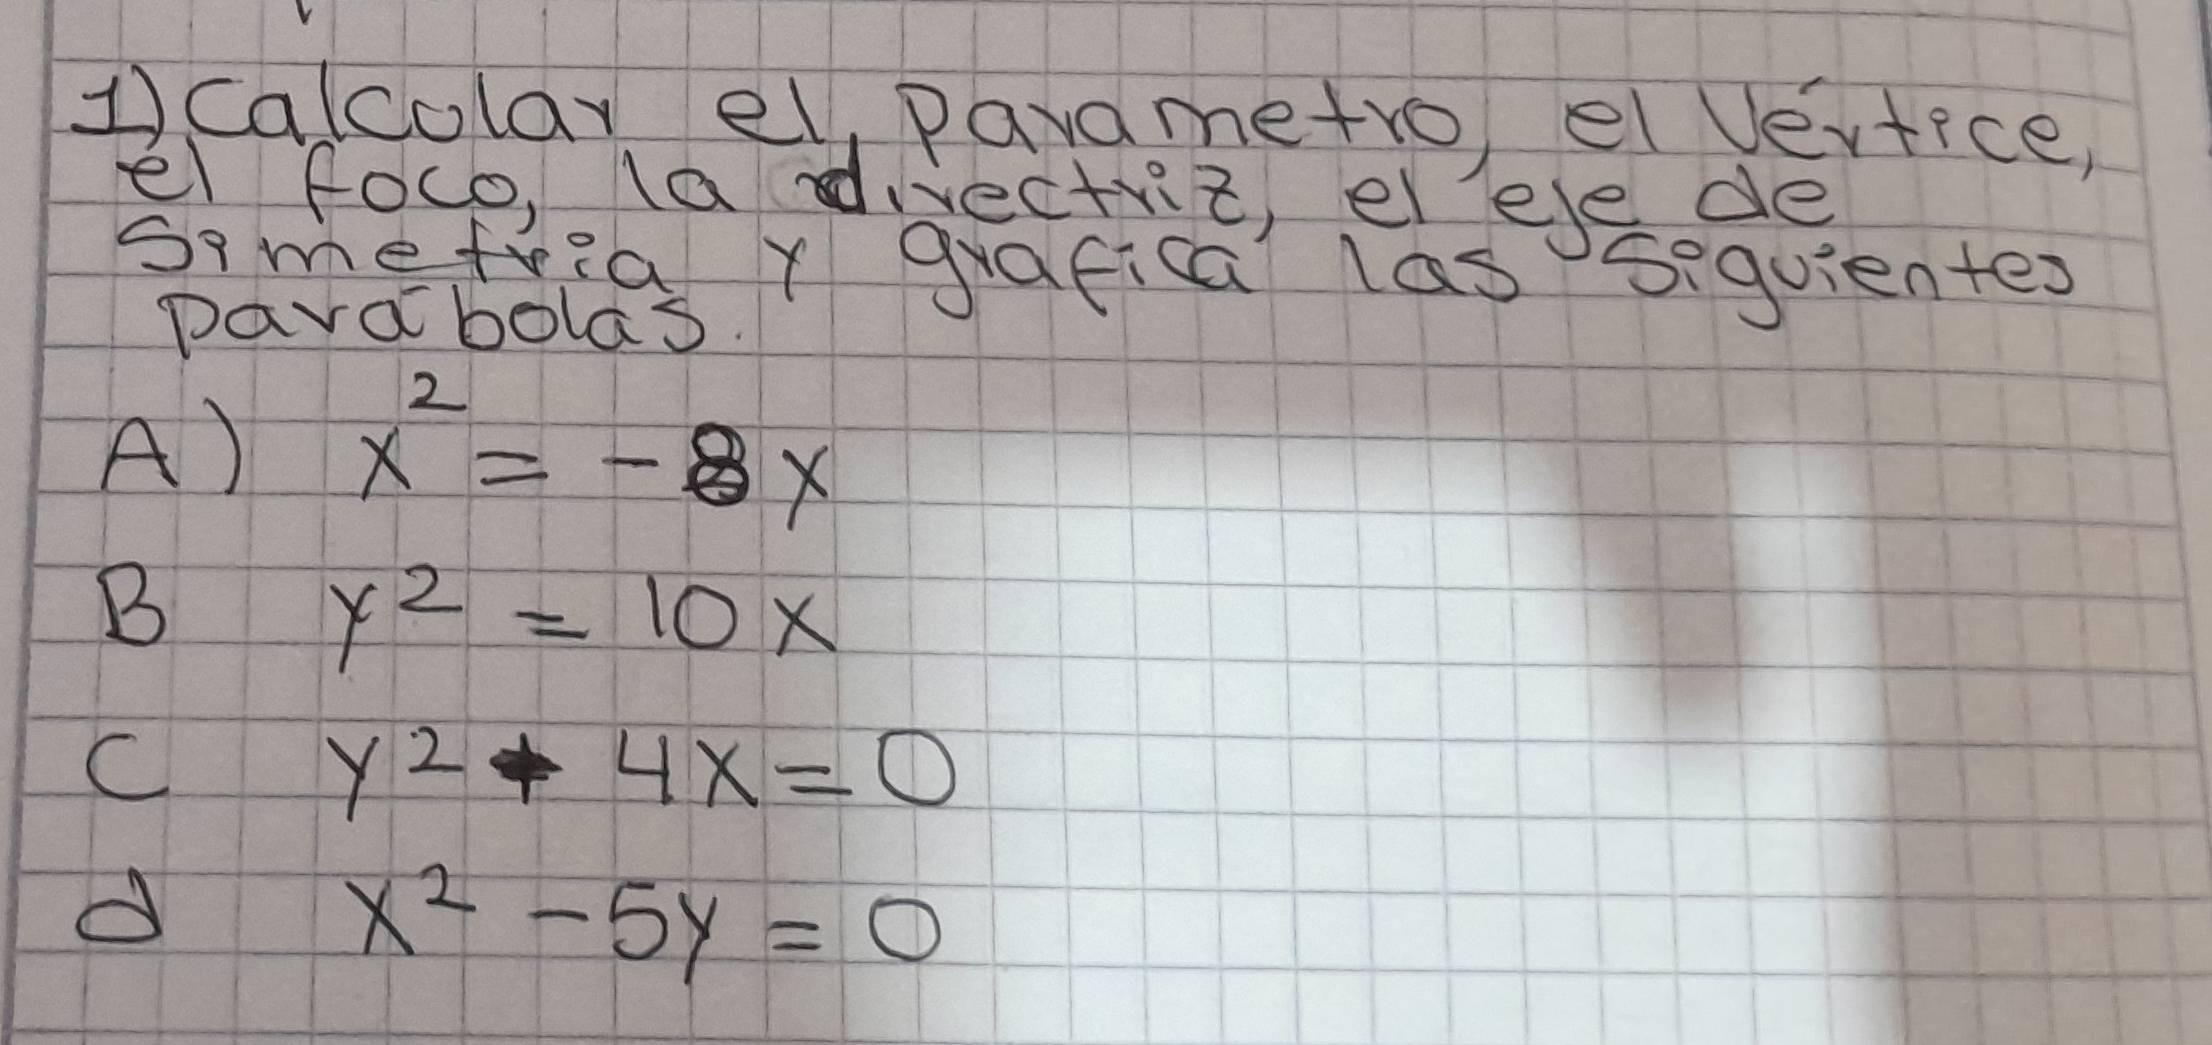 1) Calcular el Parametro, el Vértice,
el foco, la directriz, el eje de
Simetria y grafica las siguientes
parábolas.
A) x² = -8y
B y² = 10x
C y² + 4x = 0
d x² - 5y = 0